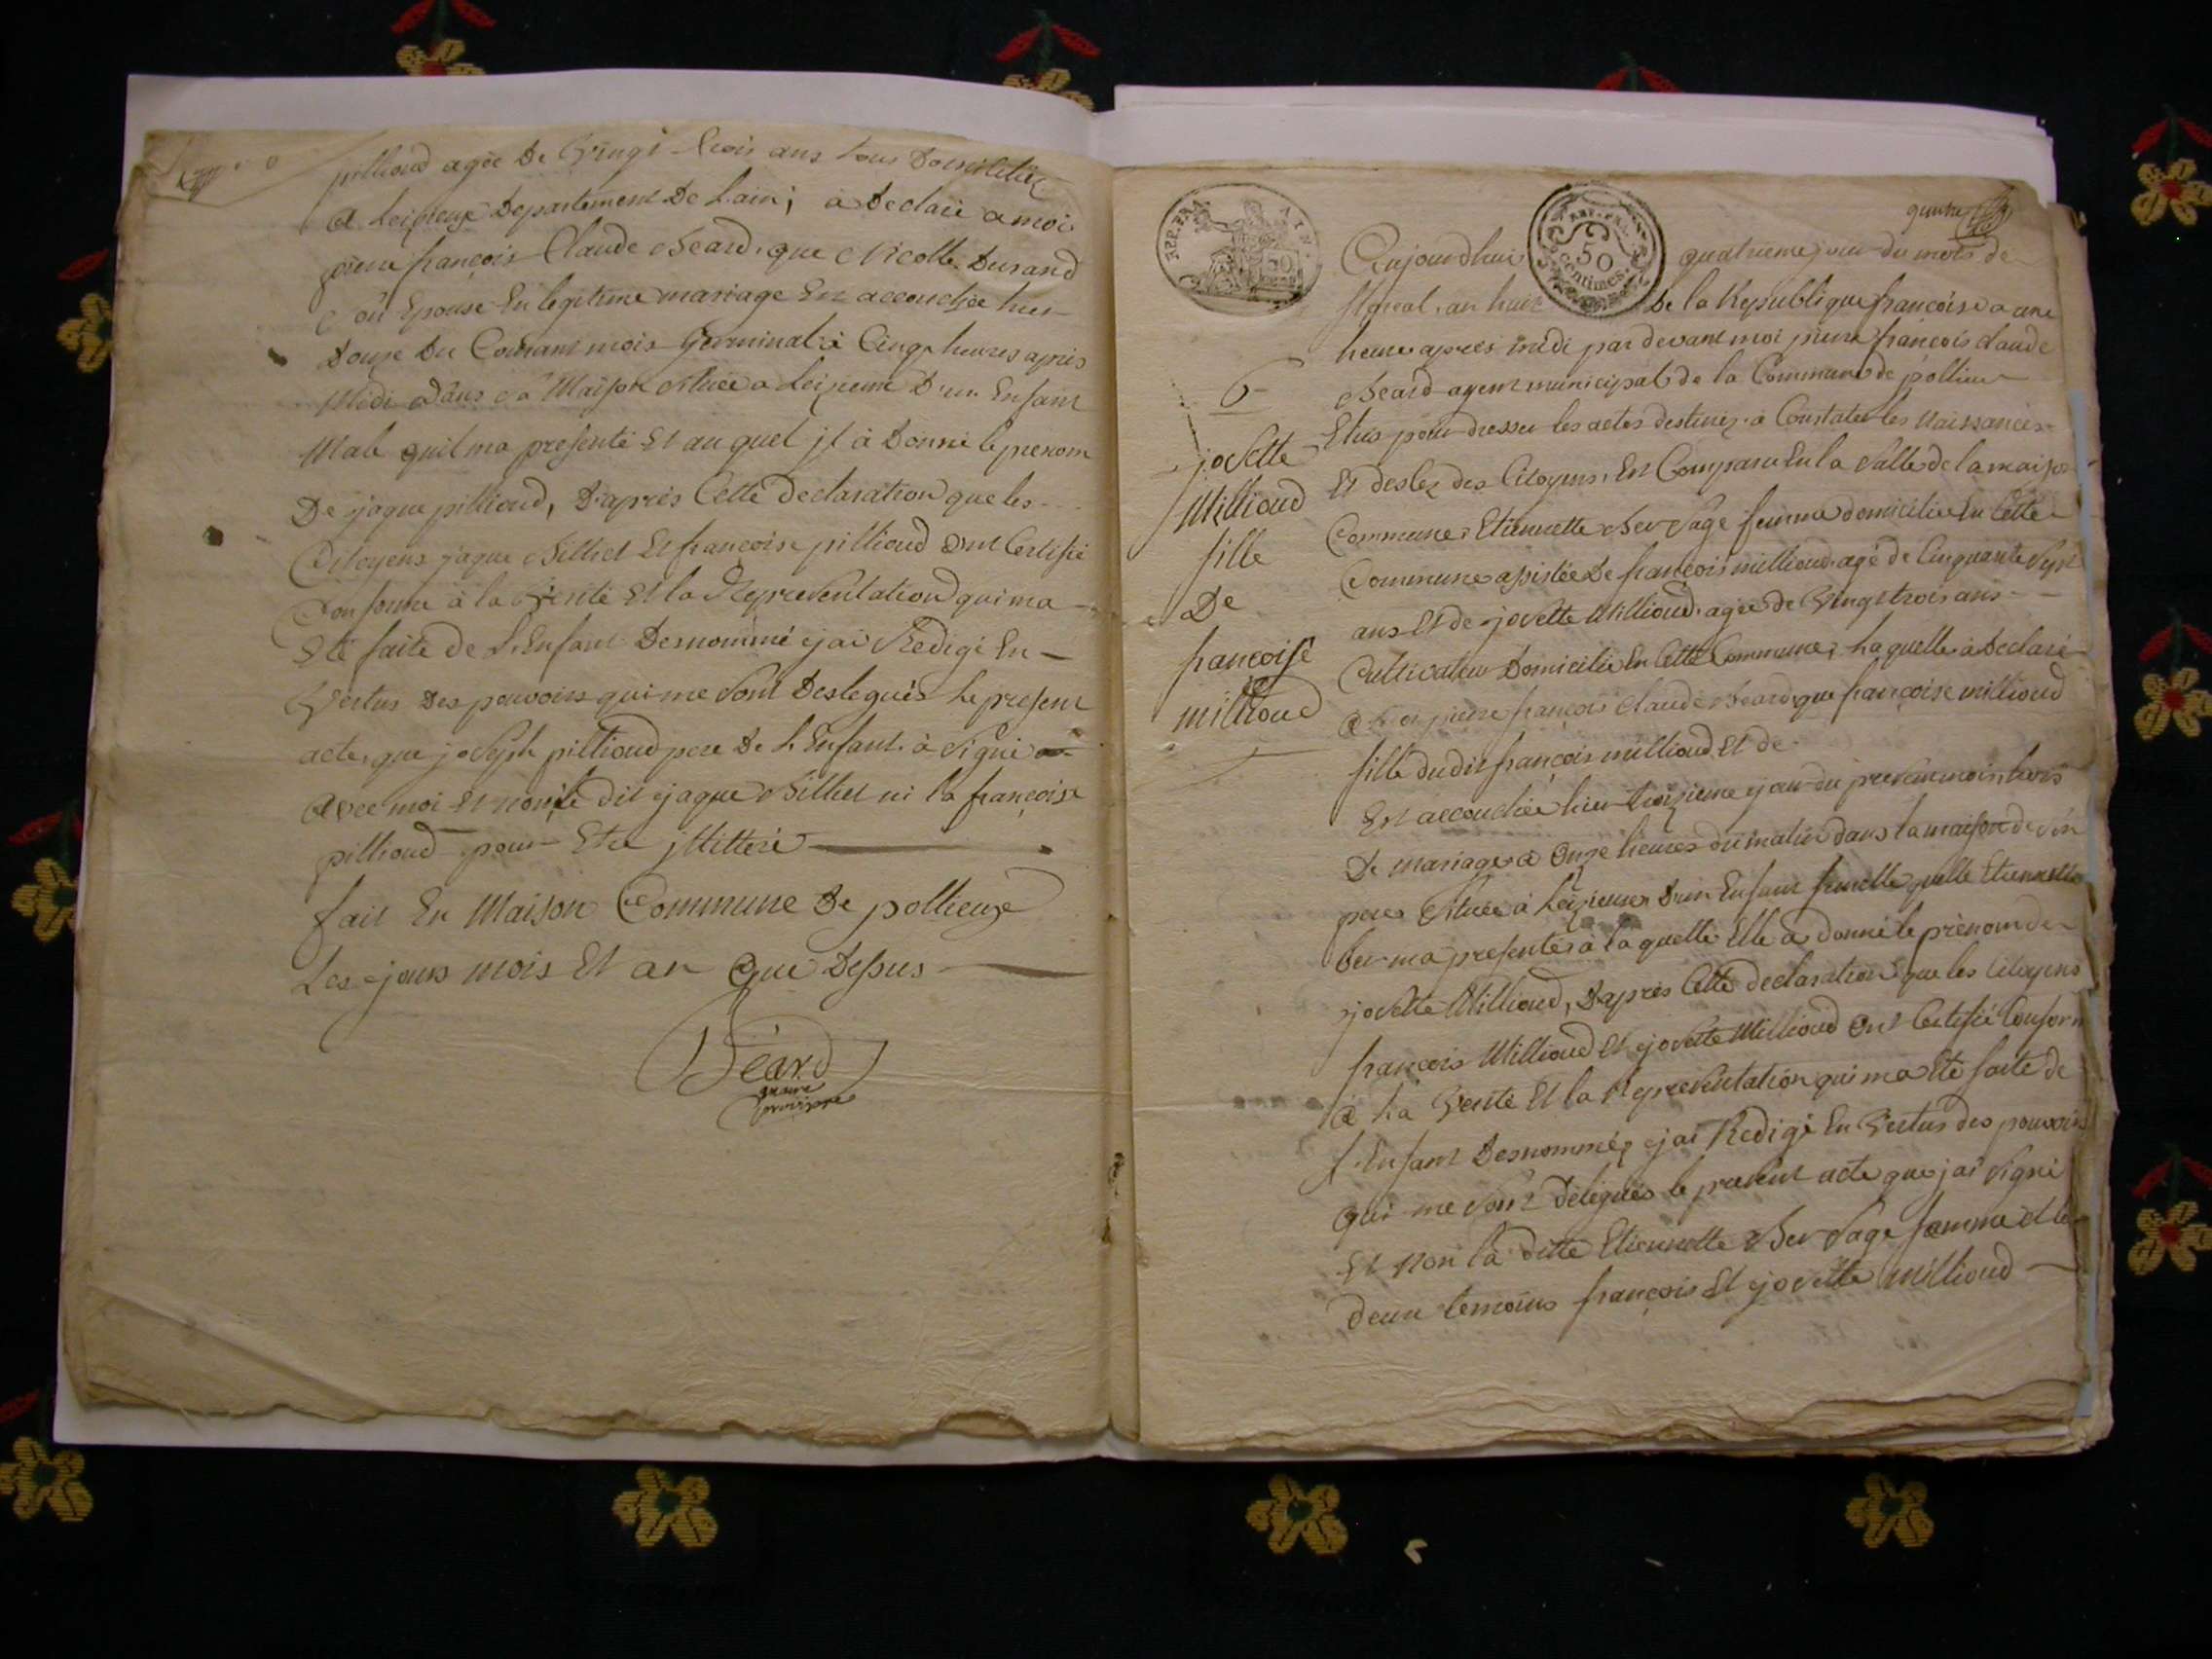 pillioud agée De Vingt-trois ans tous Domiciliés
a Leizieux Departement De Lain; a Declaré a moi
pierre françois Claude Béard que Nicolle Durand
son Epouse En legitime mariage Est accouchée hier
Douze Du Courant mois Germinal à Cinq heures après
Midi Dans sa Maison Située a Leizieux D'un Enfant
Male quil ma presenté Et au quel jl à Donné le prenom
De jaque pillioud, D'après Cette declaration que les
Citoyens jaque Billiet Et françoise pillioud ont Certifié
Conforme à la Verité Et la Representation qui ma
Eté faite de L'Enfant Denommé jai Redigé En
Vertus Des pouvoirs qui me sont Deslegués Le present
acte, que joseph pillioud pere De L'Enfant à Signé
avec moi Et non le dit jaque Billiet ni la françoise
pillioud pour Etre jlliteré
fait En Maison Commune De pollieux
Les jours mois Et an que Dessus
Béard
REP. FRA. AIN.
50
REP. FRA.
50
centimes.
6
josette
Millioud
fille
De
françoise
millioud
Aujourdhui quatrieme jour du mois de
floreal, an huit De la Republique françoise a une
heure après midi par devant moi pierre françois claude
Béard agent municipal de la Commune de pollieu
Elus pour dresser les actes destinez à Constater les Naissances
Et deslez des Citoyens, Est Comparu En la Salle de la maison
Commune, Etiennette Ber Sage femme domiciliée En Cette
Commune assistée de françois millioud agé de Cinquante Sept
ans Et de josette Millioud agée de Vingt trois ans
Cultivateur Domicilié En Cette Commune, Laquelle à Declaré
a moi pierre françois Claude Béard que françoise millioud
fille dudit françois millioud Et de
Est accouchée hier troizieme jour du present mois hors
De mariage a Onze heures du matin dans la maison de son
pere Située à Leizieux D'un Enfant femelle quelle Etiennette
Ber ma presenté à la quelle Elle a donné le prénom de
josette Millioud, D'après Cette declaration que les Citoyens
françois Millioud Et josette Millioud Ont Certifié Conforme
a La Verité Et la Representation qui ma Eté faite de
l'Enfant Desnommé, jai Redigé En Vertus des pouvoirs
qui me sont Délégués le present acte que jai signé
Et Non la ditte Etiennette Ber Sage femme Et les
deux temoins françois Et josette Millioud